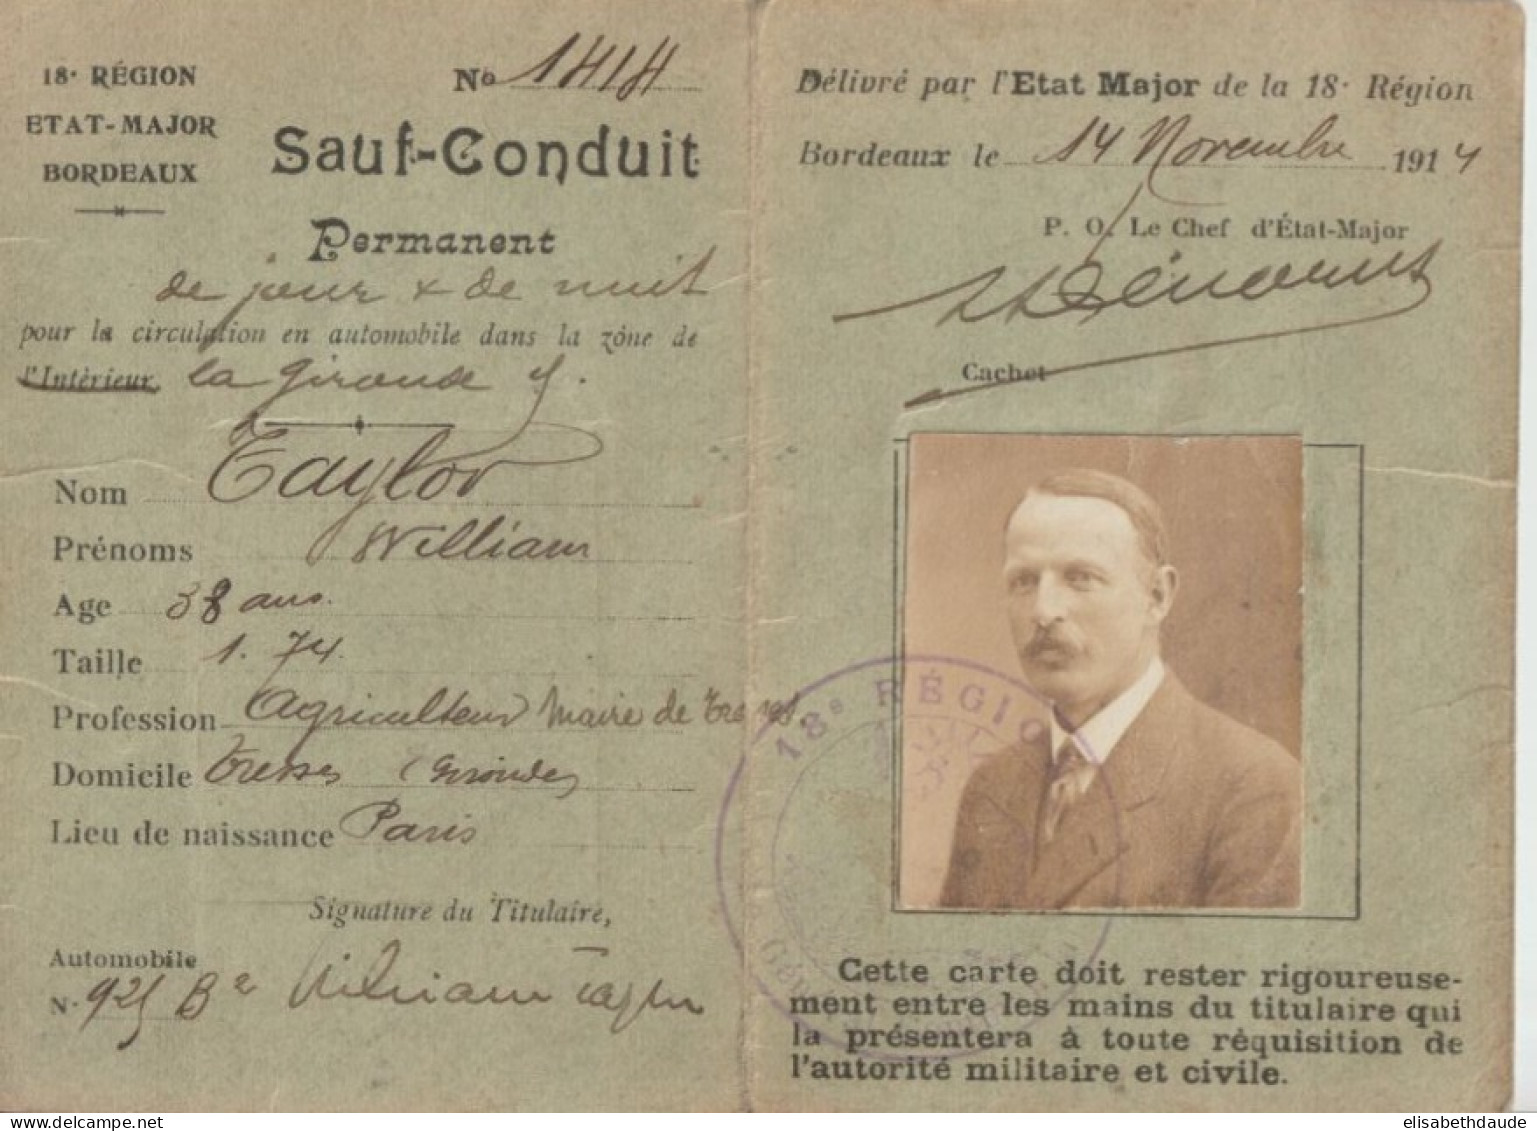 18e RÉGION
ETAT-MAJOR
BORDEAUX
No 1414
Sauf-Conduit
Permanent
de jour & de nuit
pour la circulation en automobile dans la zône de
l'Intèrieur la Gironde
Nom Taylor
Prénoms William
Age 38 ans.
Taille 1.74
Profession Agriculteur Maire de Tresses
Domicile Tresses (Gironde)
Lieu de naissance Paris
Signature du Titulaire,
Automobile
N. 925 William Taylor
Délivré par l'Etat Major de la 18e Région
Bordeaux le 14 Novembre 1914
P. O. Le Chef d'État-Major
Cachet
18e RÉGION
Cette carte doit rester rigoureuse-
ment entre les mains du titulaire qui
la présentera à toute réquisition de
l'autorité militaire et civile.
delcampe.net
elisabethdaude